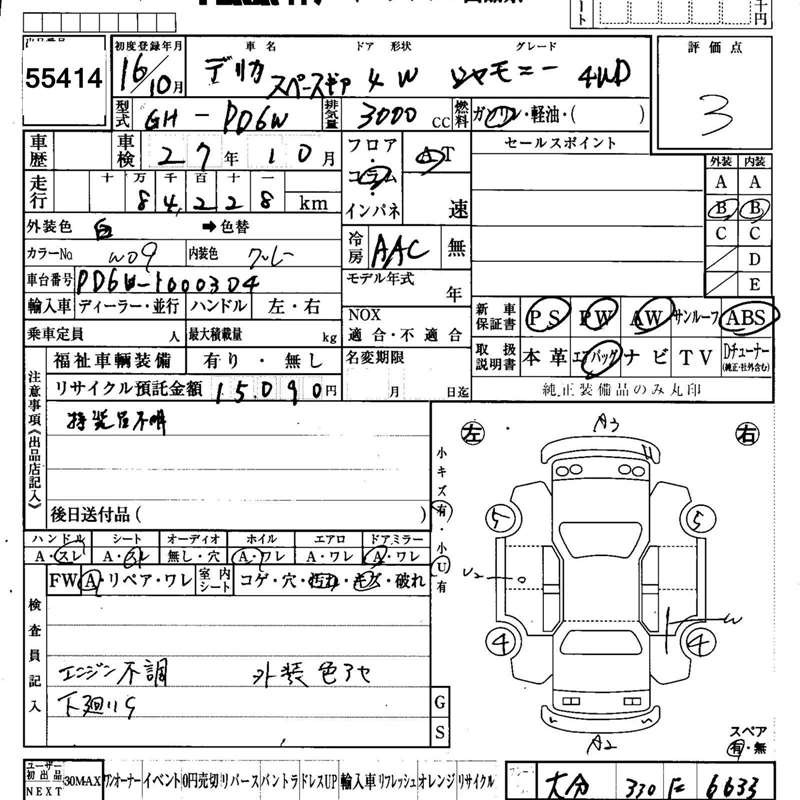 出品番号
55414
初度登録年月
16/10月
車名 ドア 形状 グレード
デリカ スペースギア 4 W シャモニー 4WD
評価点
3
型式 GH-PD6W
排気量 3000 CC
燃料 ガソリン・軽油・( )
車歴
車検 27年 10月
フロア・コラム・インパネ
AT
速
セールスポイント
外装 内装
A A
B B
C C
D
E
走行 十万千百十一
84,228 km
外装色 白 ➡色替
カラーNo W09 内装色 グレー
冷房 AAC 無
車台番号 PD6W-1000304
モデル年式 年
輸入車 ディーラー・並行 ハンドル 左・右
NOX 適合・不適合
新車保証書 PS PW AW サンルーフ ABS
乗車定員 人 最大積載量 kg
取扱説明書 本革 エアバッグ ナビ TV Dチューナー (純正・社外含む)
福祉車輌装備 有り・無し
名変期限 月 日迄
純正装備品のみ丸印
リサイクル預託金額 15.090円
注意事項《出品店記入》
後日送付品( )
小キズ有・小U有
左 右
A3
5 5
U2
W
4 4
A2
スペア
有・無
ハンドル シート オーディオ ホイル エアロ ドアミラー
A・スレ A・スレ 無し・穴 A・ワレ A・ワレ A・ワレ
FW A・リペア・ワレ 室内シート コゲ・穴・汚れ・キズ・破れ
検査員記入
エンジン不調 外装色アセ
G
S
ユーザー初出品 NEXT 30MAX ワンオーナー イベント 0円売切 リバース バントラ ドレスUP 輸入車 リフレッシュ オレンジ リサイクル
大分 330 6633